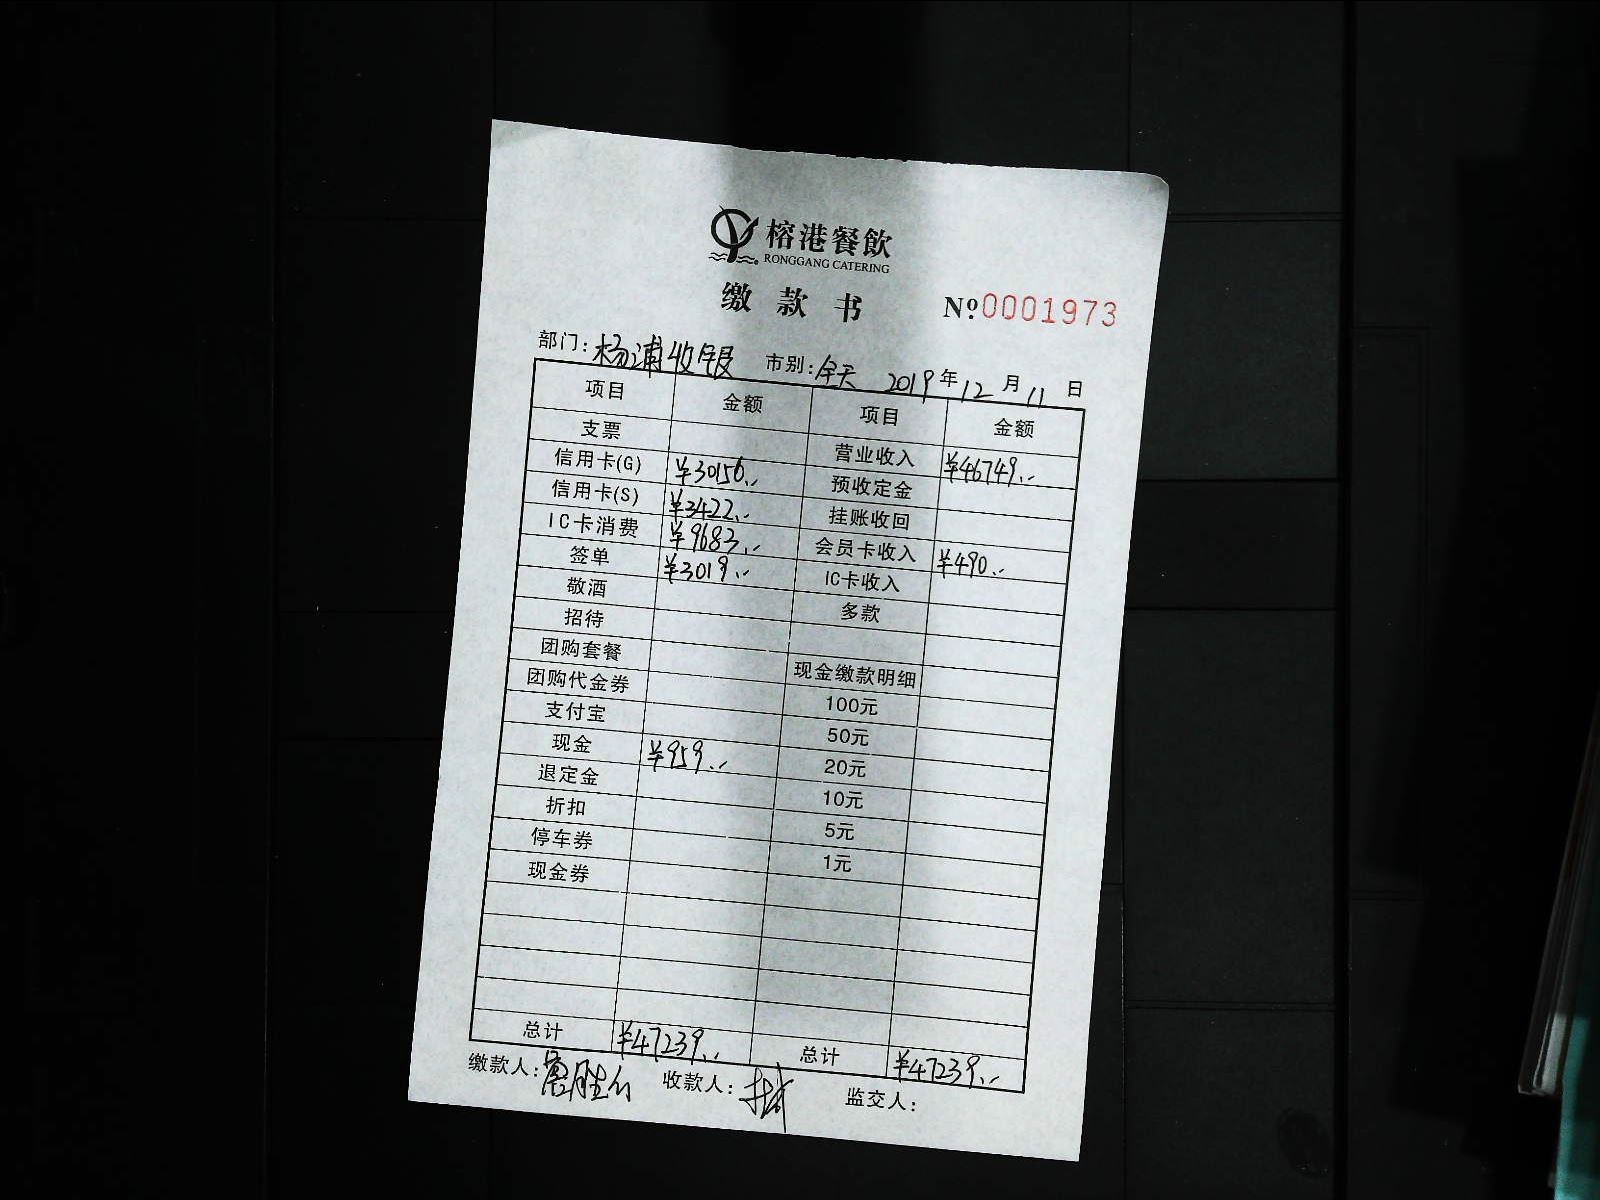 榕港餐飲
RONGGANG CATERING
缴款书 Nº0001973
部门:杨浦收银 市别:全天 2019年12月11日
项目 金额 项目 金额
支票 营业收入 ¥46749.-
信用卡(G) ¥30156.- 预收定金
信用卡(S) ¥3422.- 挂账收回
IC卡消费 ¥9683.- 会员卡收入 ¥490.-
签单 ¥3019.- IC卡收入
敬酒 多款
招待
团购套餐 现金缴款明细
团购代金券 100元
支付宝 50元
现金 ¥959.- 20元
退定金 10元
折扣 5元
停车券 1元
现金券
总计 ¥47239.- 总计 ¥47239.-
缴款人: 收款人: 监交人: